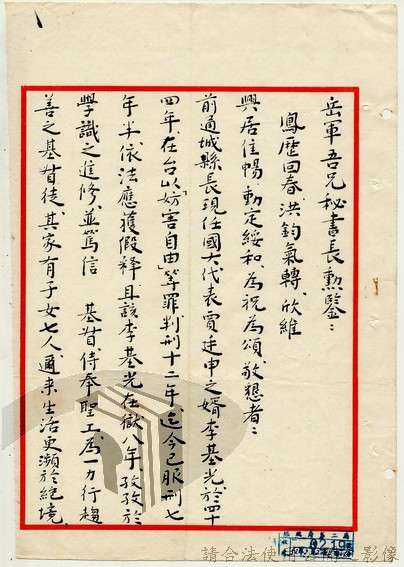 岳軍吾兄秘書長勳鑒：
鳳歷回春，洪鈞氣轉，欣維
興居佳暢，動定綏和，為祝為頌。敬懇者：
前通城縣長現任國大代表賈廷申之婿李基光，於四十
四年，在台以「妨害自由」等罪判刑十二年，迄今已服刑七
年半，依法應獲假釋，且該李基光在獄八年，孜孜於
學識之進修，並篤信 基督，侍奉聖工，為一力行趨
善之基督徒，其家有子女七人，邇來生活更瀕於絕境，
請合法使用 之影像